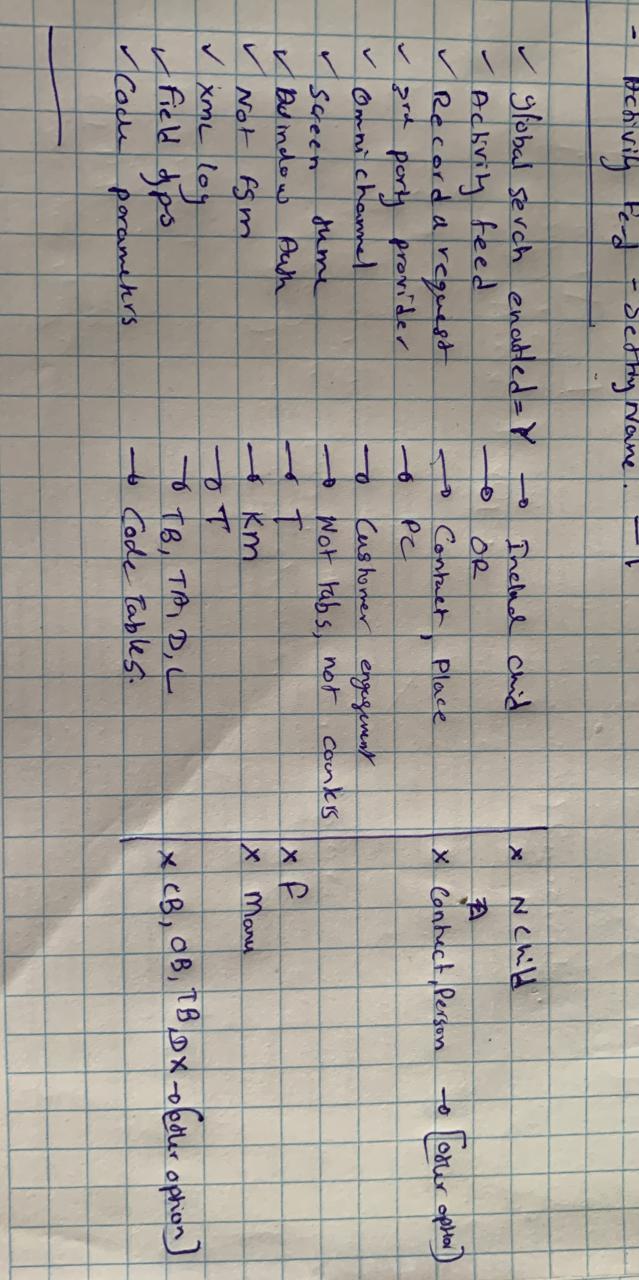 - Activity Feed - Setting Name.
✓ Global serch enabled = Y → Includ child | × N Child
✓ Activity feed → OR
✓ Record a request → Contact, Place | × Contact, Person → [Other option]
✓ 3rd party provider → PC
✓ Omnichannel → Customer engagement
✓ Screen → Not tabs, not counters
✓ Auth → T | × F
✓ Not fsm → KM | × Manu
✓ xml log → T
✓ field → TB, TA, D, L | × CB, OB, TB, DX → [other option]
✓ Code parameters → Code Tables.